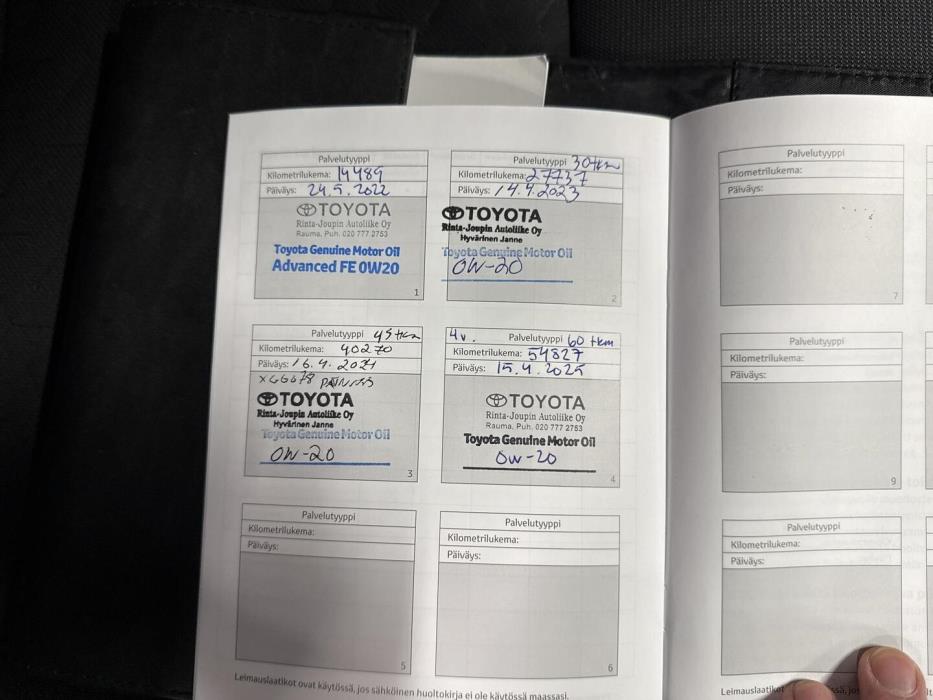 Palvelutyyppi
Kilometrilukema: 14489
Päiväys: 24.5.2022
TOYOTA
Rinta-Joupin Autoliike Oy
Rauma, Puh. 020 777 2753
Toyota Genuine Motor Oil
Advanced FE 0W20
1
Palvelutyyppi 30tkm
Kilometrilukema: 27737
Päiväys: 14.4.2023
TOYOTA
Rinta-Joupin Autoliike Oy
Hyvärinen Janne
Toyota Genuine Motor Oil
0W-20
2
Palvelutyyppi 45tkm
Kilometrilukema: 40270
Päiväys: 16.4.2024
TOYOTA
Rinta-Joupin Autoliike Oy
Hyvärinen Janne
Toyota Genuine Motor Oil
0W-20
3
4v. Palvelutyyppi 60 tkm
Kilometrilukema: 54827
Päiväys: 15.4.2025
TOYOTA
Rinta-Joupin Autoliike Oy
Rauma, Puh. 020 777 2753
Toyota Genuine Motor Oil
0w-20
4
Palvelutyyppi
Kilometrilukema:
Päiväys:
5
Palvelutyyppi
Kilometrilukema:
Päiväys:
6
Leimauslaatikot ovat käytössä, jos sähköinen huoltokirja ei ole käytössä maassasi.
Palvelutyyppi
Kilometrilukema:
Päiväys:
7
Palvelutyyppi
Kilometrilukema:
Päiväys:
9
Palvelutyyppi
Kilometrilukema:
Päiväys:
Leimauslaatikot